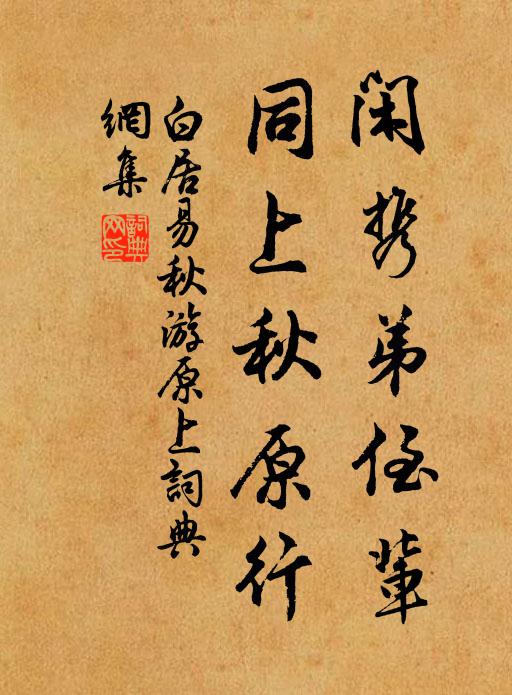 闲携弟侄辈
同上秋原行
白居易秋游原上詞典
網集
詞典网印